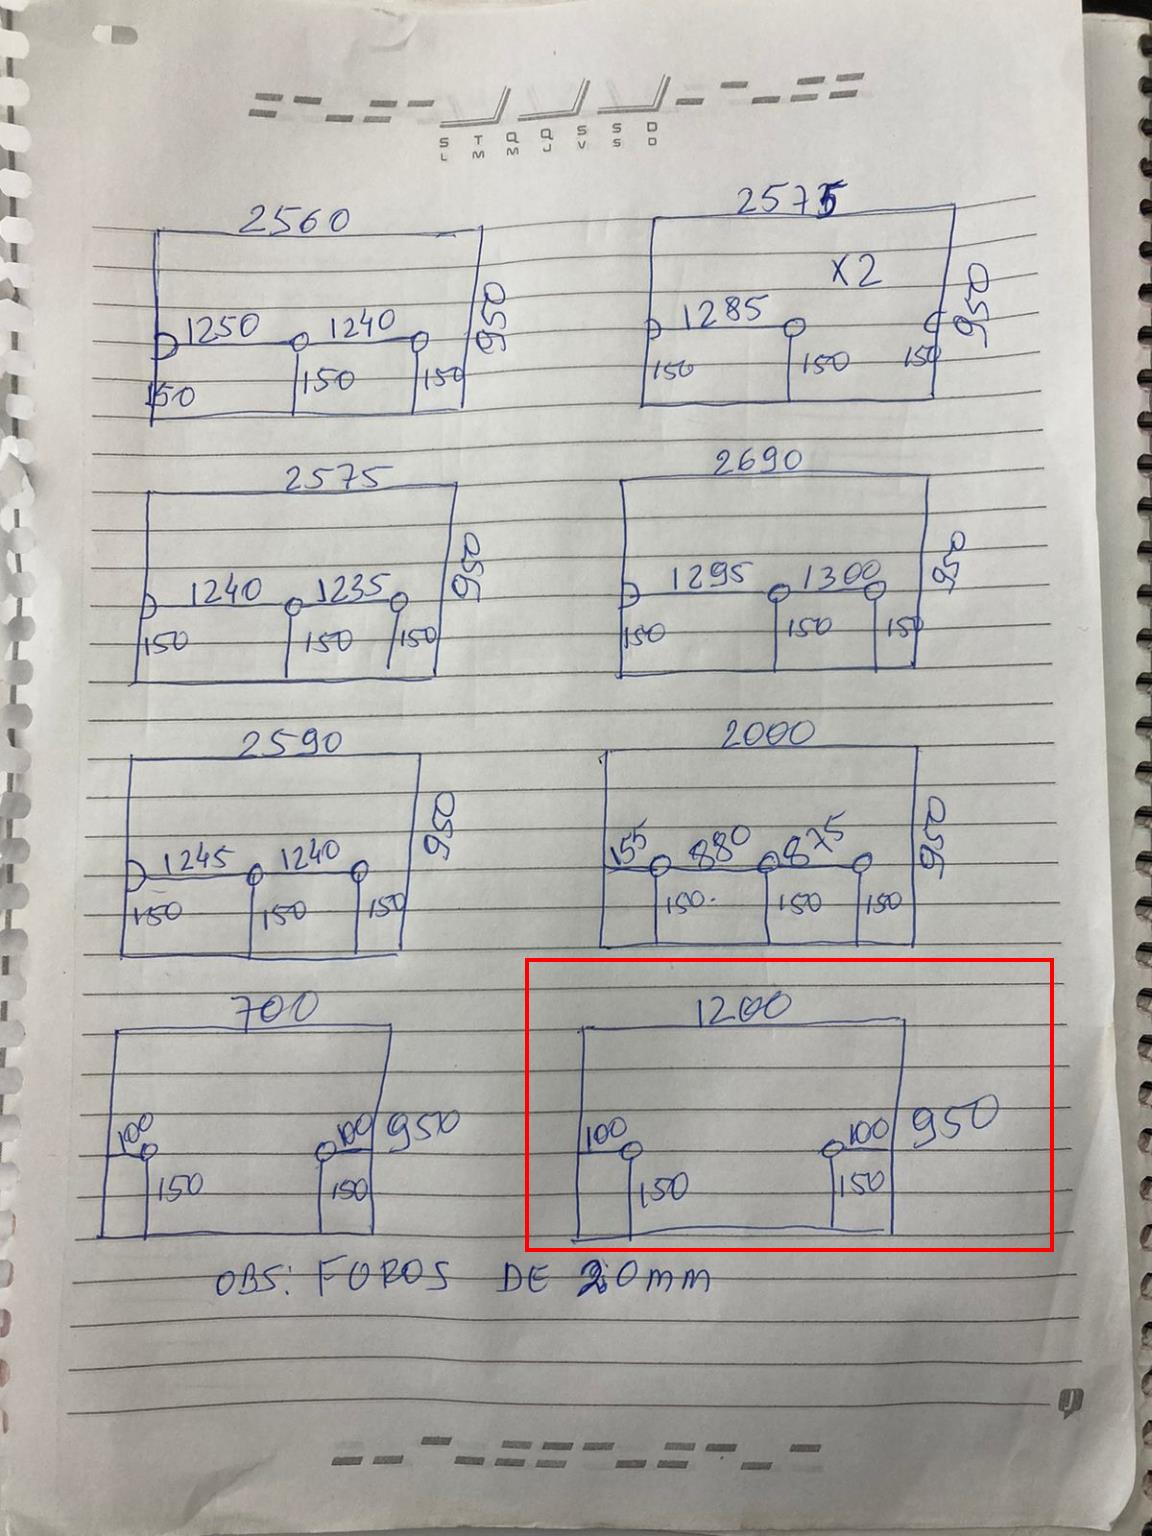 S T Q Q S S D
L M M J V S D
2560
1250 1240
950
150 150 150
2575
X2
1285
950
150 150 150
2575
1240 1235
950
150 150 150
2690
1295 1300
950
150 150 150
2590
1245 1240
950
150 150 150
2000
155 880 875
950
150. 150 150
700
100 100 950
150 150
1200
100 100 950
150 150
OBS: FUROS DE 20mm